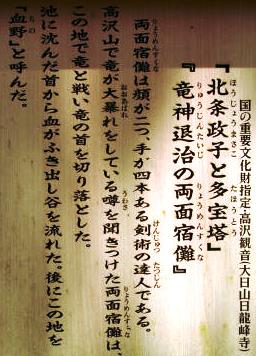 国の重要文化財指定・高沢観音(大日山日龍峰寺)
『北条政子と多宝塔』
『竜神退治の両面宿儺』
両面宿儺は顔が二つ、手が四本ある剣術の達人である。
高沢山で竜が大暴れをしている噂を聞きつけた両面宿儺は、
この地で竜と戦い竜の首を切り落とした。
池に沈んだ首から血がふき出し谷を流れた。後にこの地を
『血野』と呼んだ。